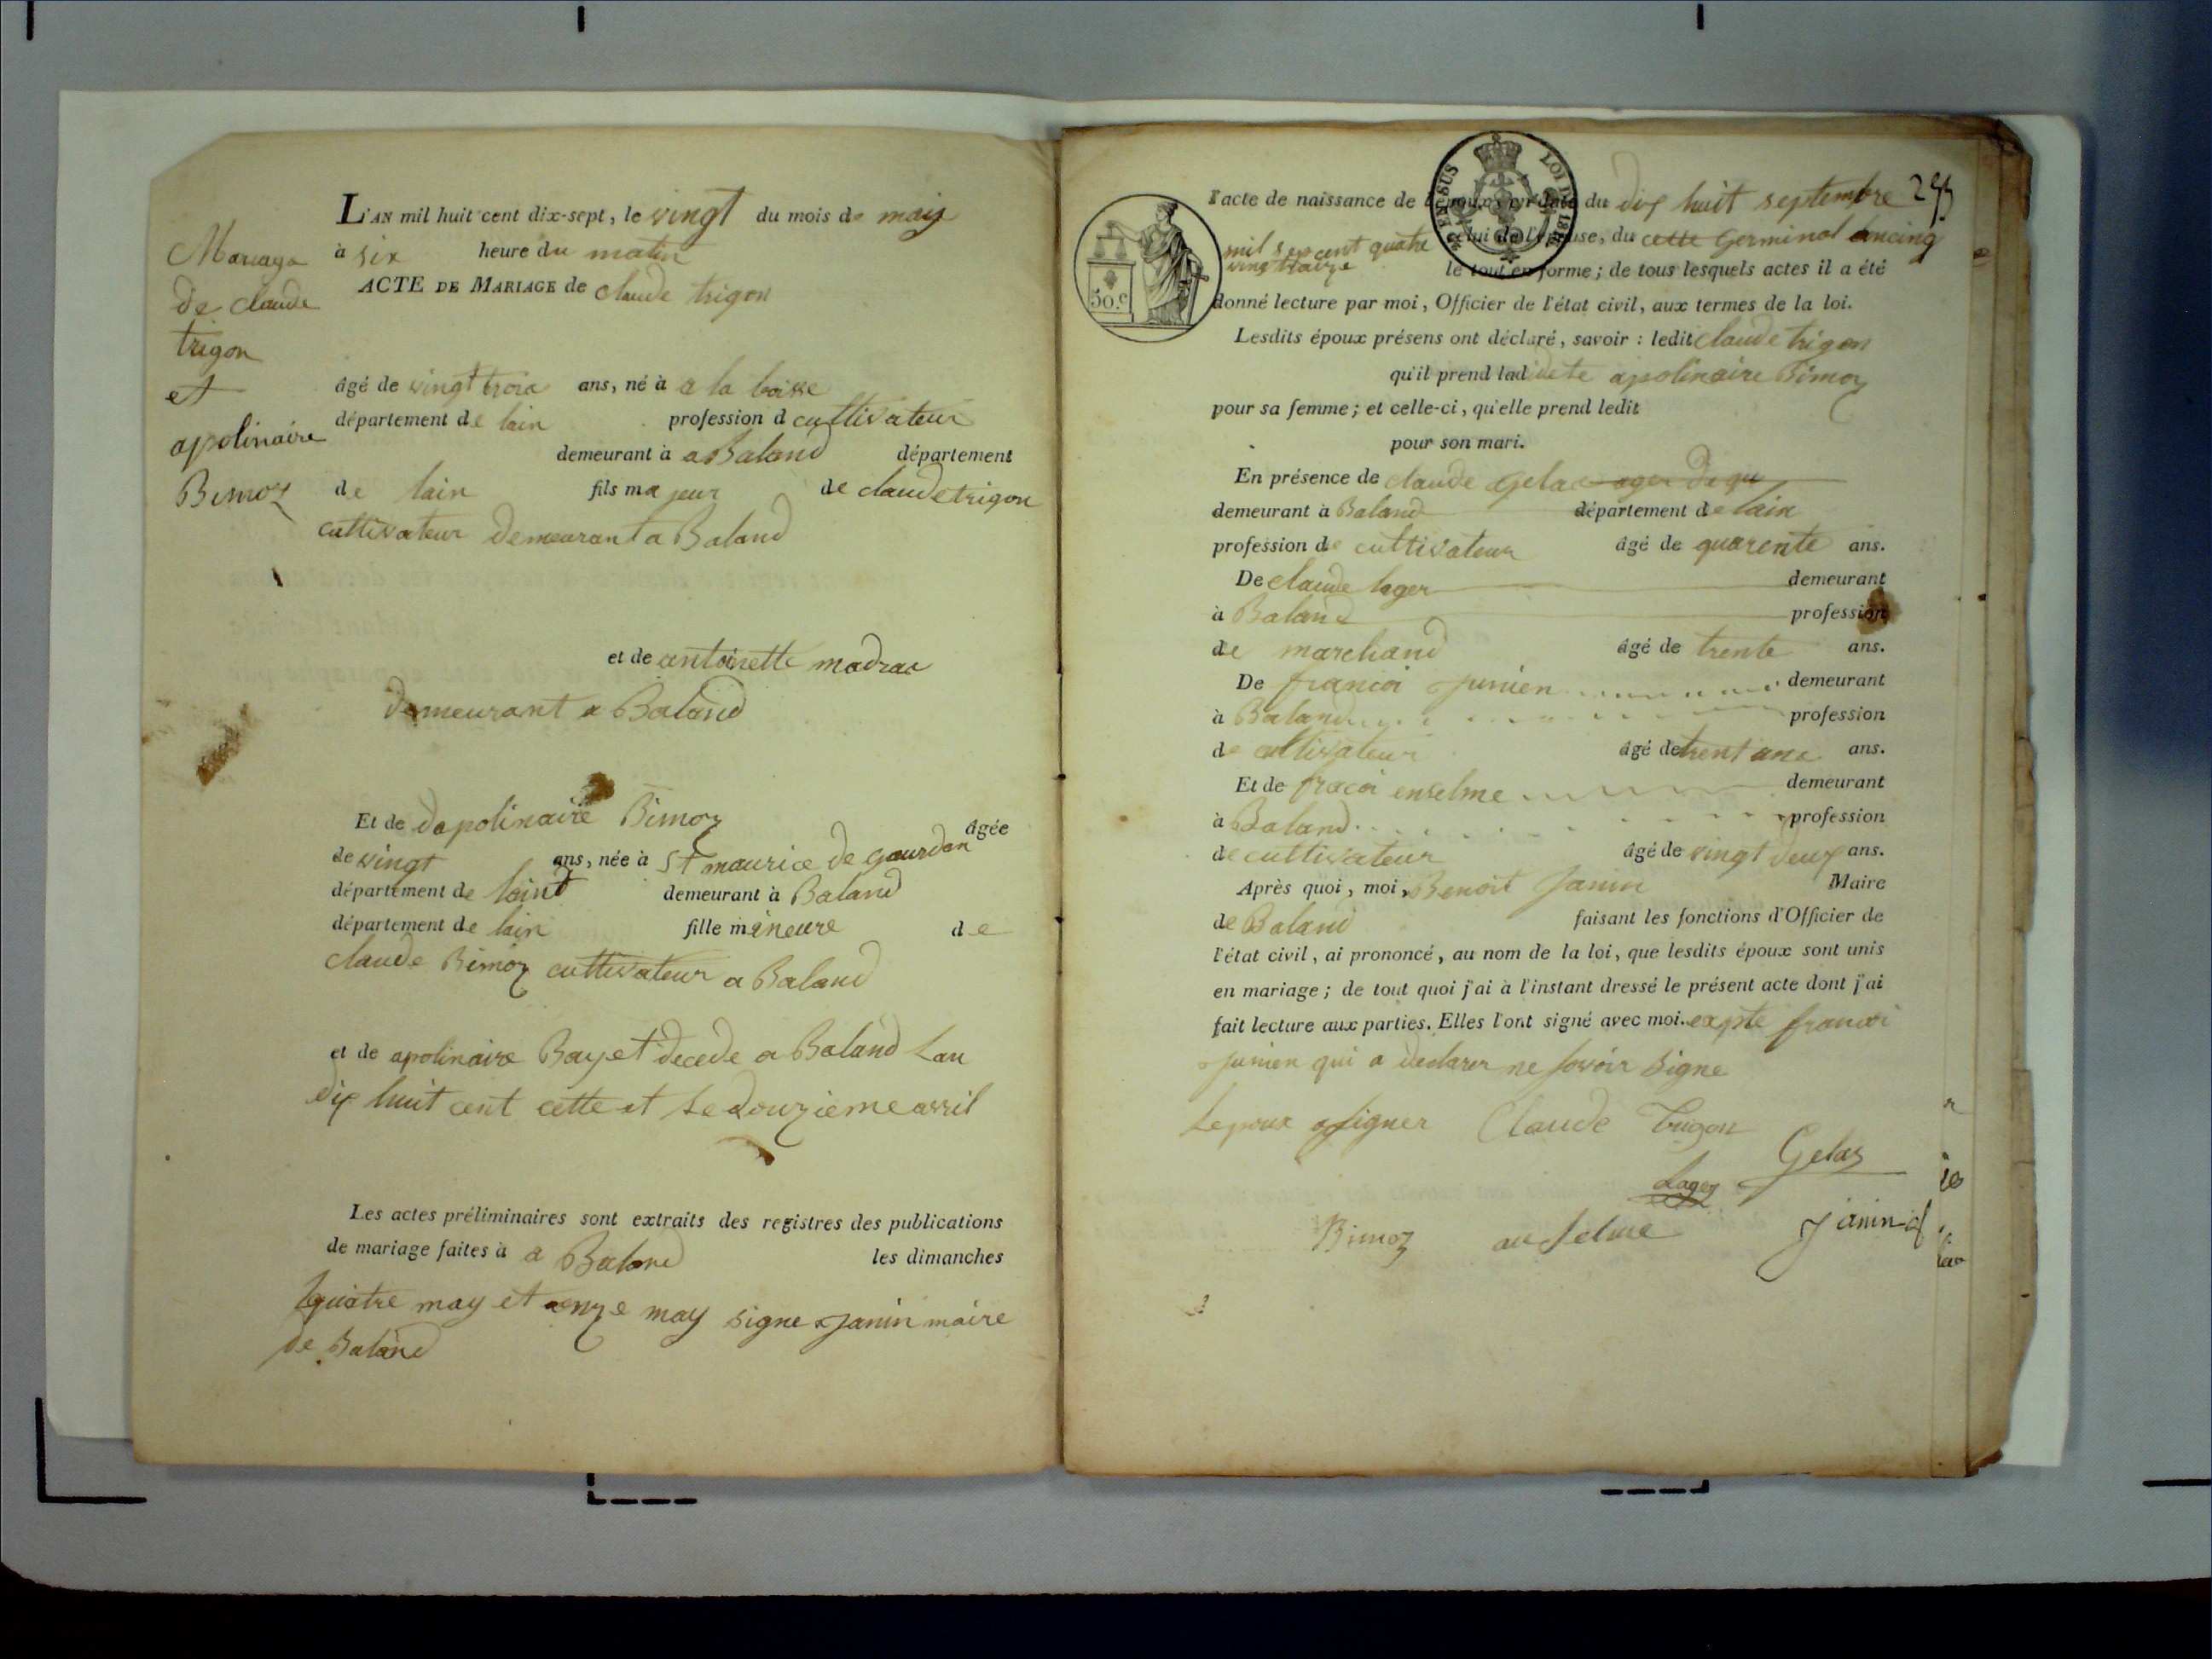 Mariage
de claude
trigon
et
apolinaire
Bimoz
L'AN mil huit cent dix-sept, le vingt du mois de may
à six heure du matin
ACTE DE MARIAGE de claude trigon
âgé de vingt trois ans, né à a la boisse
département de lain profession d cultivateur
demeurant à a Baland département
de lain fils majeur de claude trigon
cultivateur demeurant a Baland
et de antoinette madrac
demeurant a Baland
Et de dapolinaire Bimoz âgée
de vingt ans, née à St maurice de gourdan
département de laint demeurant à Baland
département de lain fille mineure de
claude Bimoz cultivateur a Baland
et de apolinaire Bayet decede a Baland Lan
dix huit cent cette et le douzieme avril
Les actes préliminaires sont extraits des registres des publications
de mariage faites à a Baland les dimanches
quatre may et onze may signe Janin maire
de Baland
50.c
LOI D
l'acte de naissance de l'époux du dix huit septembre
mil sepcent quatre celui de l'épouse, du cette Germinal ancinq
vingt traize le tout en forme ; de tous lesquels actes il a été
donné lecture par moi, Officier de l'état civil, aux termes de la loi.
Lesdits époux présens ont déclaré, savoir : ledit claude trigon
qu'il prend ladidete apolinaire Bimoz
pour sa femme ; et celle-ci, qu'elle prend ledit
pour son mari.
En présence de claude gelac
demeurant à Baland département de lain
profession de cultivateur âgé de quarente ans.
De claude lager demeurant
à Baland profession
de marchand âgé de trente ans.
De francoi junien demeurant
à Baland profession
de cultivateur âgé de trent ans.
Et de fracoi enselme demeurant
à Baland profession
de cultivateur âgé de vingt deux ans.
Après quoi, moi, Benoit Janin Maire
de Baland faisant les fonctions d'Officier de
l'état civil, ai prononcé, au nom de la loi, que lesdits époux sont unis
en mariage ; de tout quoi j'ai à l'instant dressé le présent acte dont j'ai
fait lecture aux parties. Elles l'ont signé avec moi. expte francoi
junien qui a declarer ne savoir signe
Lepoux a signer Claude Trigon
Gelas
Lager
Bimoz anselme Janin